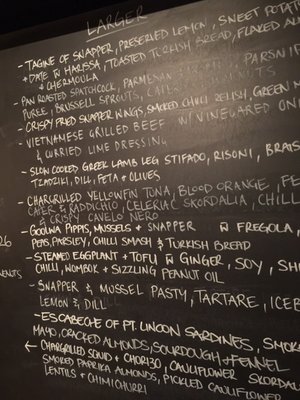 LARGER
- TAGINE OF SNAPPER, PRESERVED LEMON, SWEET POTATO
+ DATE W HARISSA, TOASTED TURKISH BREAD, FLAKED
& CHERMOULA
- PAN ROASTED SPATCHCOCK, PARMESAN PARSNIP
PUREE, BRUSSELL SPROUTS,
- CRISPY FRIED SNAPPER WINGS, SMOKED CHILLI RELISH, GREEN
- VIETNAMESE GRILLED BEEF W VINEGARED
& CURRIED LIME DRESSING
- SLOW COOKED GREEK LAMB LEG STIFADO, RISONI, BRAIS
TZADZIKI, DILL, FETA & OLIVES
- CHARGRILLED YELLOWFIN TUNA, BLOOD ORANGE, FE
CAPER & RADDICCHIO, CELERIAC SKORDALIA, CHILL
& CRISPY CAVELO NERO
- GOOLWA PIPPIS, MUSSELS + SNAPPER W FREGOLA,
PEPS, PARSLEY, CHILLI SMASH & TURKISH BREAD
- STEAMED EGGPLANT + TOFU W GINGER, SOY, SHI
CHILLI, WOMBOK + SIZZLING PEANUT OIL
- SNAPPER & MUSSEL PASTY, TARTARE, ICEB
LEMON & DILL
- ESCABECHE OF PT. LINCOLN SARDINES, SMOK
MAYO, CRACKED ALMONDS, SOURDOUGH + FENNEL
← CHARGRILLED SQUID & CHORIZO, CAULIFLOWER SKORDAL
SMOKED PAPRIKA ALMONDS, PICKLED CAULIFLOWER
LENTILS + CHIMICHURRI
26